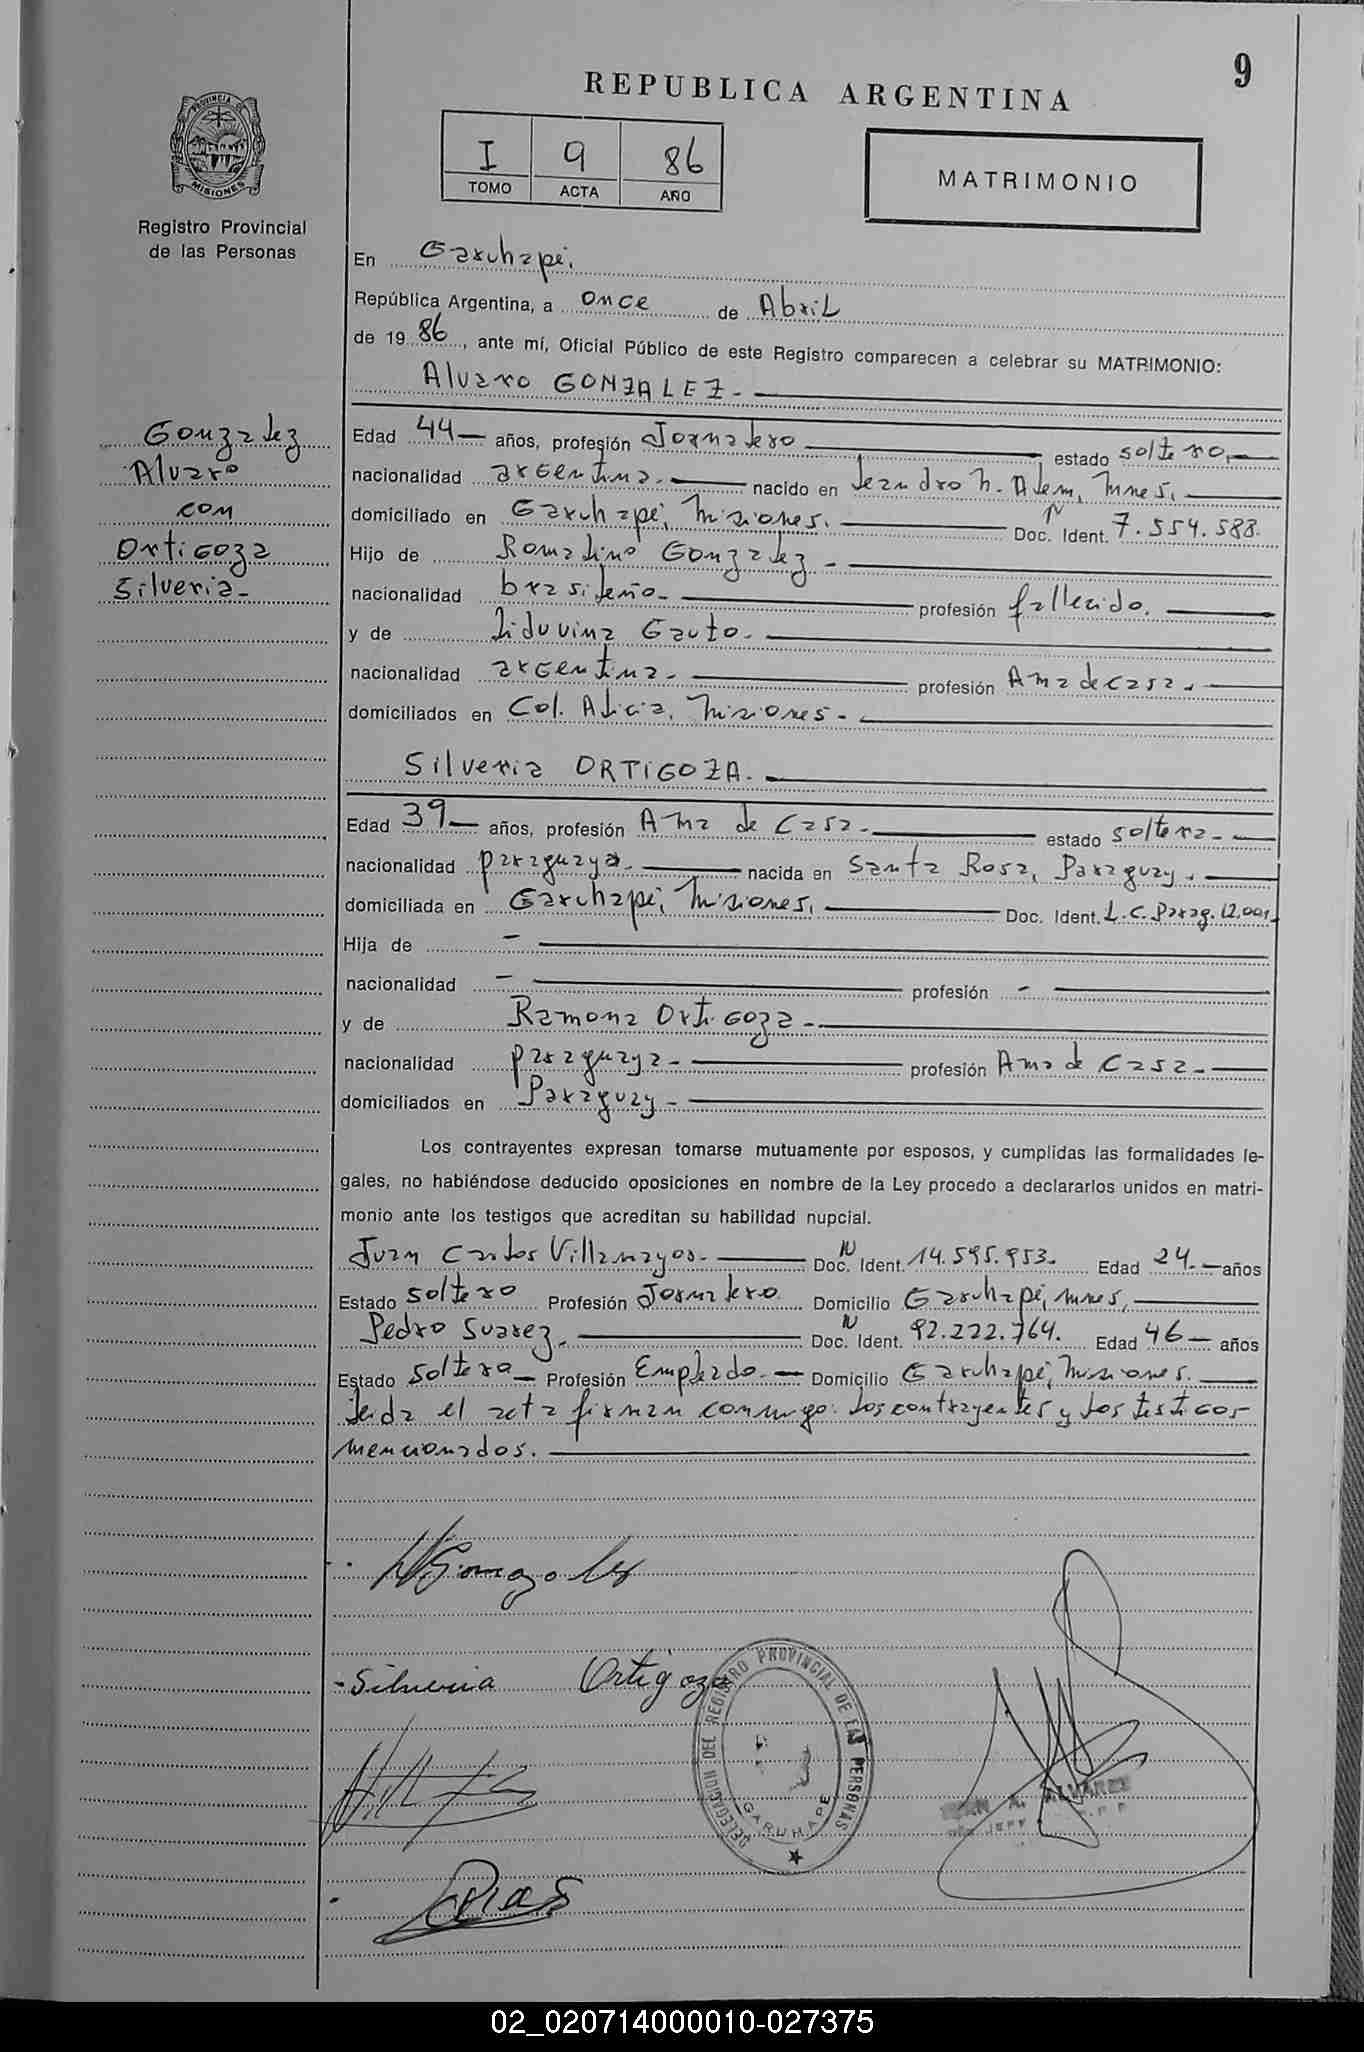 9
REPUBLICA ARGENTINA
PROVINCIA DE
MISIONES
Registro Provincial
de las Personas
I 9 86
TOMO ACTA AÑO
MATRIMONIO
En Garuhapé,
República Argentina, a once de Abril
de 19 86, ante mí, Oficial Público de este Registro comparecen a celebrar su MATRIMONIO:
Alvaro GONZALEZ.-
Gonzalez
Alvaro
con
Ortigoza
Silveria-
Edad 44- años, profesión Jornalero estado soltero,-
nacionalidad argentina.- nacido en Leandro N. Alem, Mnes,
domiciliado en Garuhapé, Misiones. Doc. Ident. N 7.554.588.
Hijo de Romalino Gonzalez -
nacionalidad brasileño- profesión fallecido.
y de Liduvina Gauto.-
nacionalidad argentina.- profesión Ama de casa.
domiciliados en Col. Alicia, Misiones-
Silveria ORTIGOZA.
Edad 39- años, profesión Ama de Casa.- estado soltera.-
nacionalidad paraguaya.- nacida en Santa Rosa, Paraguay.
domiciliada en Garuhapé, Misiones, Doc. Ident. L.C. Parag. 12.001
Hija de -
nacionalidad - profesión -
y de Ramona Ortigoza-
nacionalidad paraguaya- profesión Ama de Casa-
domiciliados en Paraguay-
Los contrayentes expresan tomarse mutuamente por esposos, y cumplidas las formalidades le-
gales, no habiéndose deducido oposiciones en nombre de la Ley procedo a declararlos unidos en matri-
monio ante los testigos que acreditan su habilidad nupcial.
Juan Carlos Villamayor- Doc. Ident. N 14.595.953. Edad 24.- años
Estado soltero Profesión Jornalero Domicilio Garuhapé, mnes,
Pedro Suarez. Doc. Ident. N 92.222.764. Edad 46- años
Estado Soltero- Profesión Empleado.- Domicilio Garuhapé, Misiones.
Leida el acta firman conmigo los contrayentes y los testigos
mencionados.
Silveria Ortigoza
DELEGACION DEL REGISTRO PROVINCIAL DE LAS PERSONAS
GARUHAPE
A. ALVAREZ
JEFE
02_020714000010-027375